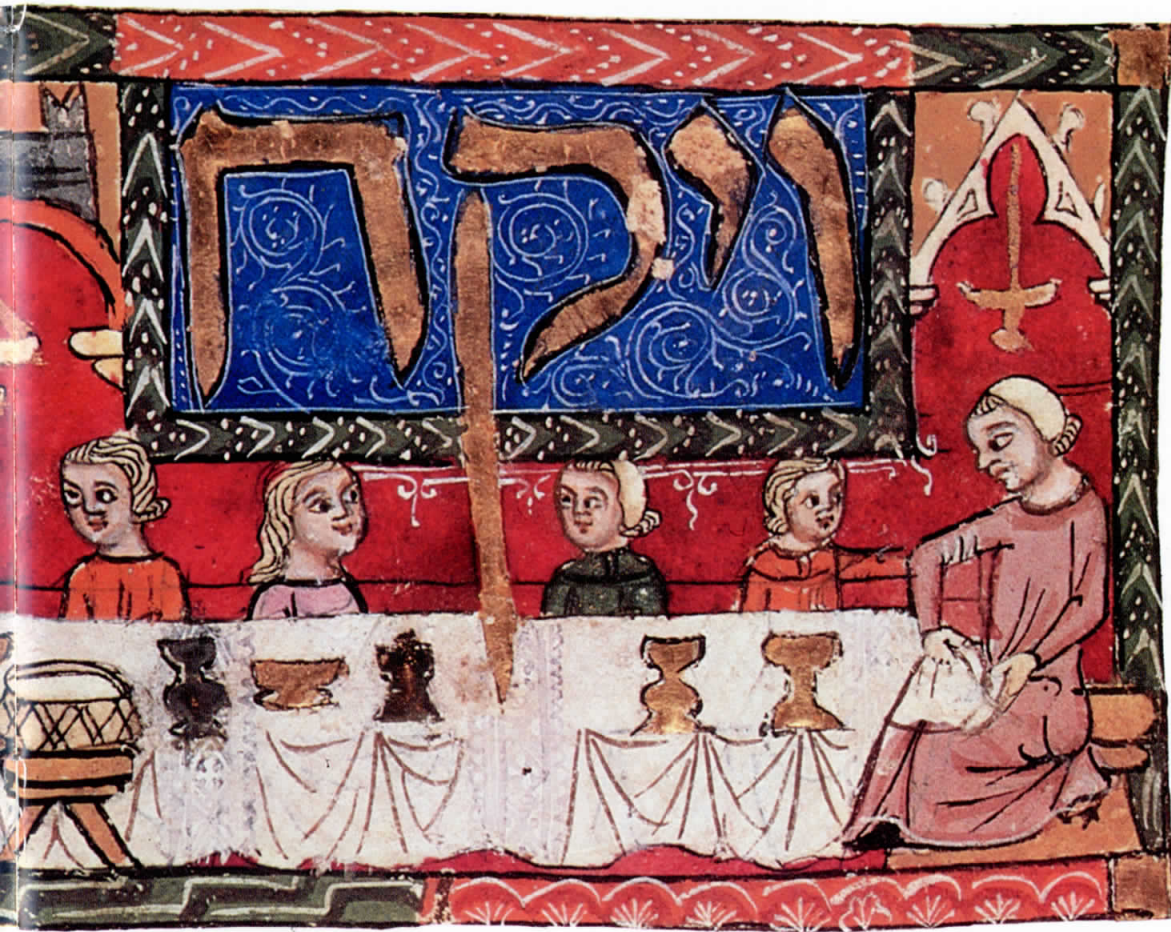 ויקח